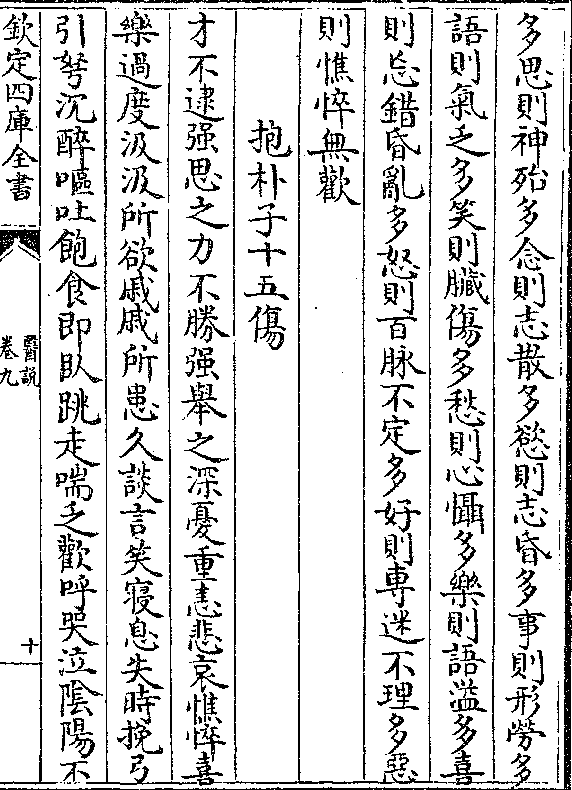 多思則神殆多念則志散多慾則志昏多事則形勞多
語則氣乏多笑則臟傷多愁則心懾多樂則語溢多喜
則忘錯昏亂多怒則百脉不定多好則專迷不理多惡
則憔悴無歡
抱朴子十五傷
才不逮强思之力不勝强舉之深憂重恚悲哀憔悴喜
樂過度汲汲所欲戚戚所患久談言笑寝息失時挽弓
引弩沉醉嘔吐飽食即臥跳走喘乏歡呼哭泣陰陽不
欽定四庫全書
醫説
卷九
十